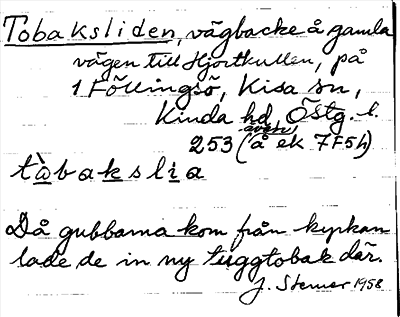 Tobaksliden, vägbacke å gamla
vägen till Hjortkullen, på
1 Föllingsö, Kisa sn,
Kinda hd, Östg. l.
även
253 (å ek 7F5h)
tàbakslia
Då gubbarna kom från kyrkan
lade de in ny tuggtobak där.
J. Sterner 1958